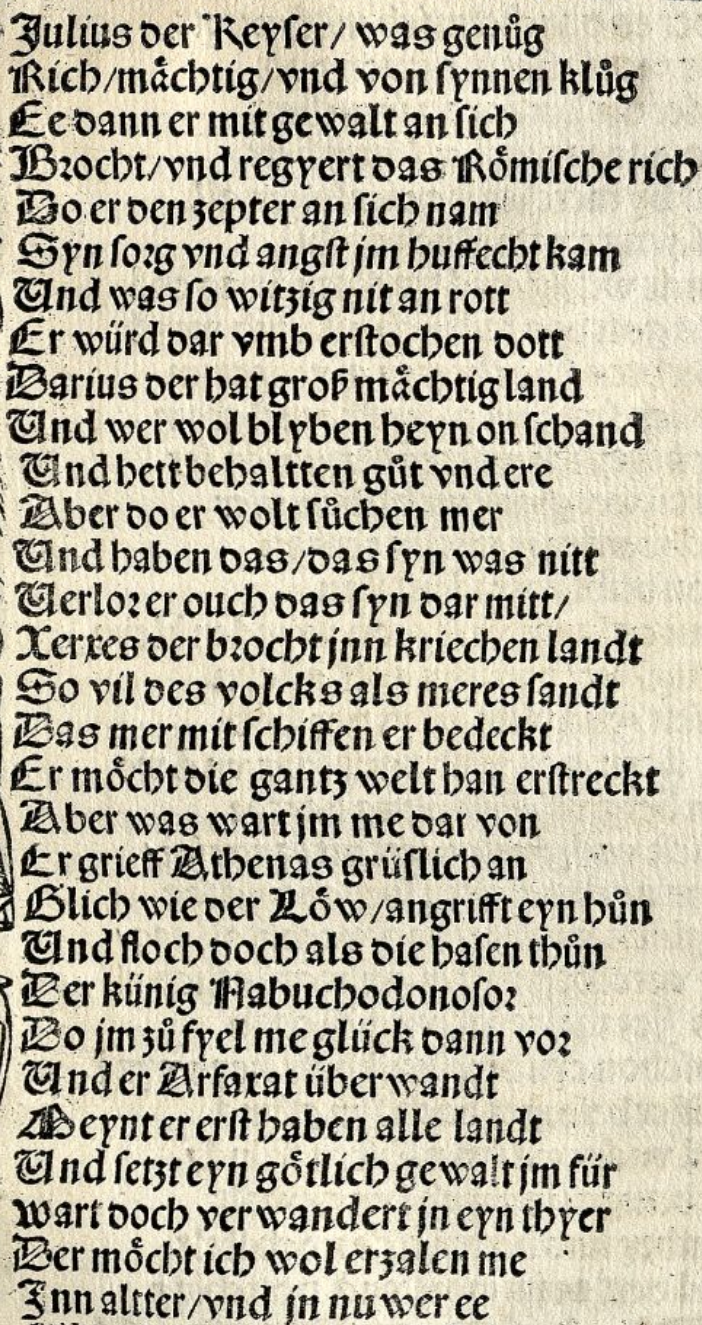 Julius der Keyſer/ was genuͦg
Rich/maͤchtig/vnd von ſynnen kluͦg
Ee dann er mit gewalt an ſich
Brocht/vnd regyert das Roͤmiſche rich
Do er den zepter an ſich nam
Syn ſorg vnd angſt jm huffecht kam
Und was ſo witzig nit an rott
Er würd dar vmb erſtochen dott
Darius der hat groß maͤchtig land
Und wer wol blyben heyn on ſchand
Und hett behaltten guͦt vnd ere
Aber do er wolt ſuͦchen mer
Und haben das/das ſyn was nitt
Uerlor er ouch das ſyn dar mitt/
Xerxes der brocht jnn kriechen landt
So vil des volcks als meres ſandt
Das mer mit ſchiffen er bedeckt
Er moͤcht die gantz welt han erſtreckt
Aber was wart jm me dar von
Er grieff Athenas grüſlich an
Glich wie der Loͤw/angrifft eyn huͦn
Und floch doch als die haſen thuͦn
Der künig Nabuchodonoſor
Do jm zuͦ fyel me glück dann vor
Und er Arfaxat überwandt
Meynt er erſt haben alle landt
Und ſetzt eyn goͤtlich gewalt jm für
Wart doch verwandert jn eyn thyer
Der moͤcht ich wol erzalen me
Inn altter/vnd jn nuwer ee